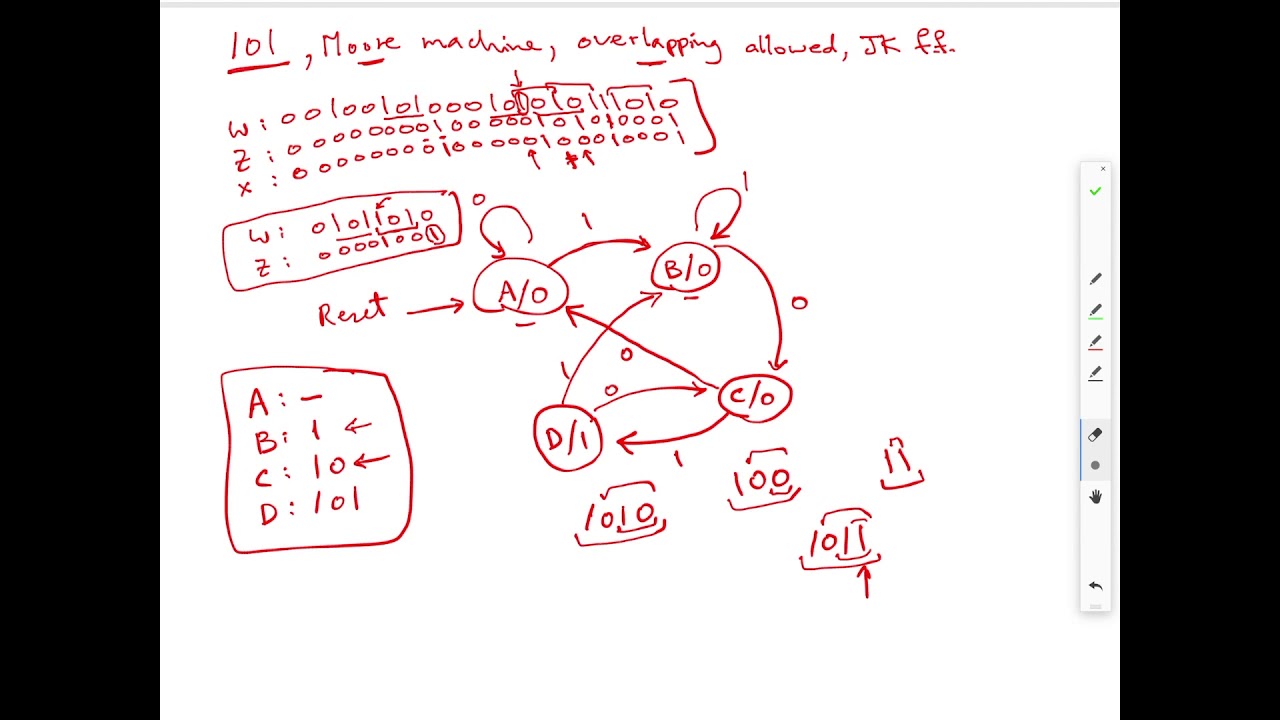 101, Moore machine, overlapping allowed, JK ff.
W: 00100101000101010111010
Z: 00000000100000101010001
X: 00000000100000100010001
W: 01011010
Z: 00001001
0
1
1
A/0
B/0
Reset
0
0
1
0
C/0
D/1
1
A: -
B: 1
C: 10
D: 101
1010
100
11
1011